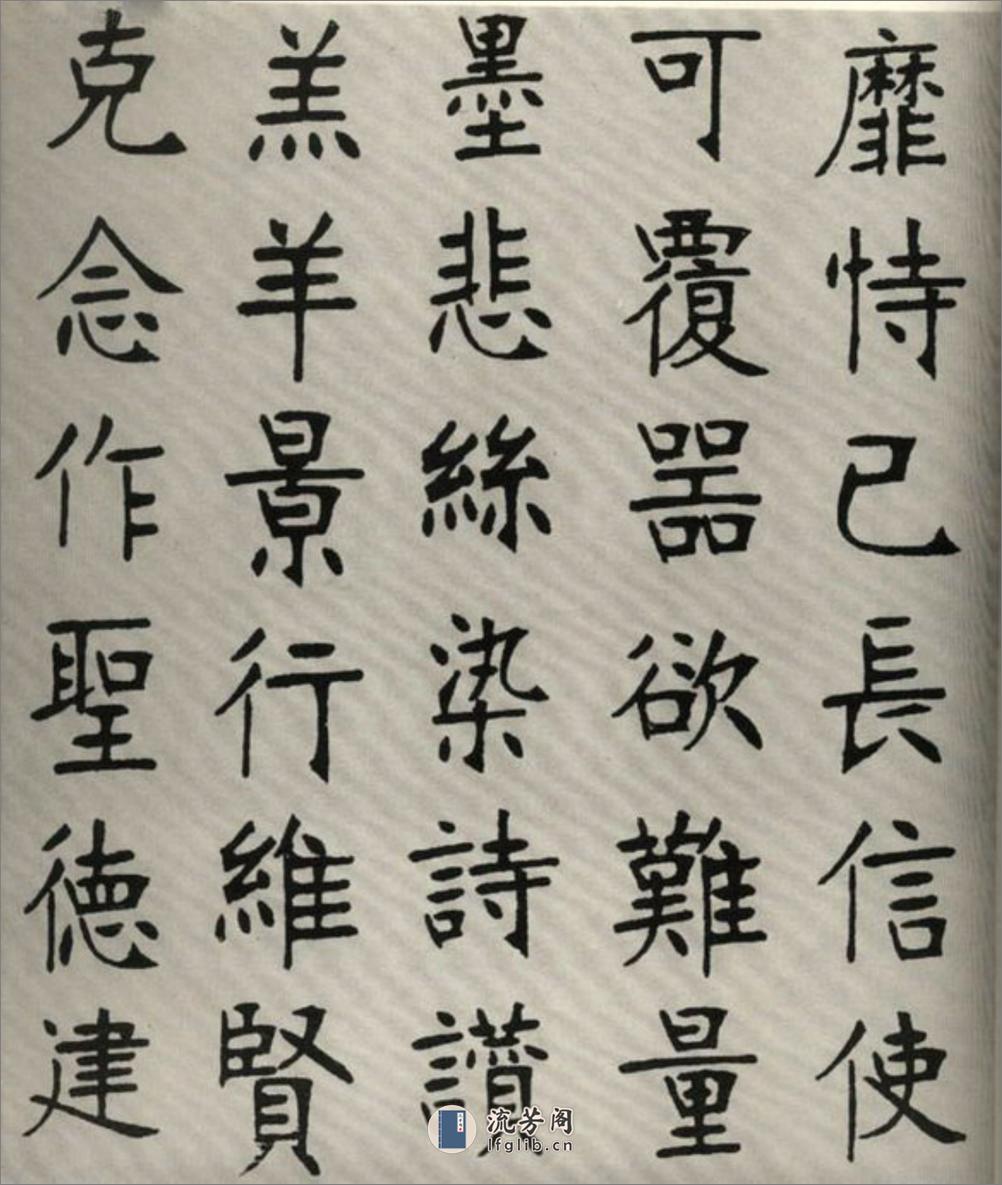 靡恃己長信使
可覆器欲難量
墨悲絲染詩讚
羔羊景行維賢
克念作聖德建
流芳阁
lfglib.cn